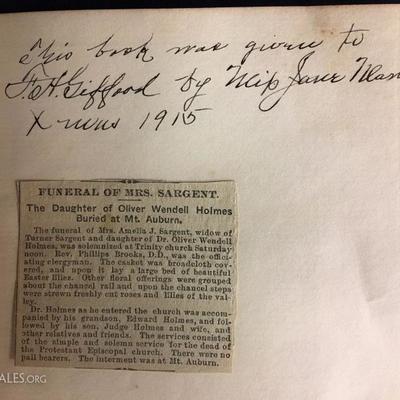 This book was given to
F. H. Gifford by Miss Jane
Xmas 1915
FUNERAL OF MRS. SARGENT.
The Daughter of Oliver Wendell Holmes
Buried at Mt. Auburn.
The funeral of Mrs. Amelia J. Sargent, widow of
Turner Sargent and daughter of Dr. Oliver Wendell
Holmes, was solemnized at Trinity church Saturday
noon. Rev. Phillips Brooks, D.D., was the offici-
ating clergyman. The casket was broadcloth cov-
ered, and upon it lay a large bed of beautiful
Easter lilies. Other floral offerings were grouped
about the chancel rail and upon the chancel steps
were strewn freshly cut roses and lilies of the val-
ley.
Dr. Holmes as he entered the church was accom-
panied by his grandson, Edward Holmes, and fol-
lowed by his son, Judge Holmes and wife, and
other relatives and friends. The services consisted
of the simple and solemn service for the dead of
the Protestant Episcopal church. There were no
pall bearers. The interment was at Mt. Auburn.
ALES.ORG